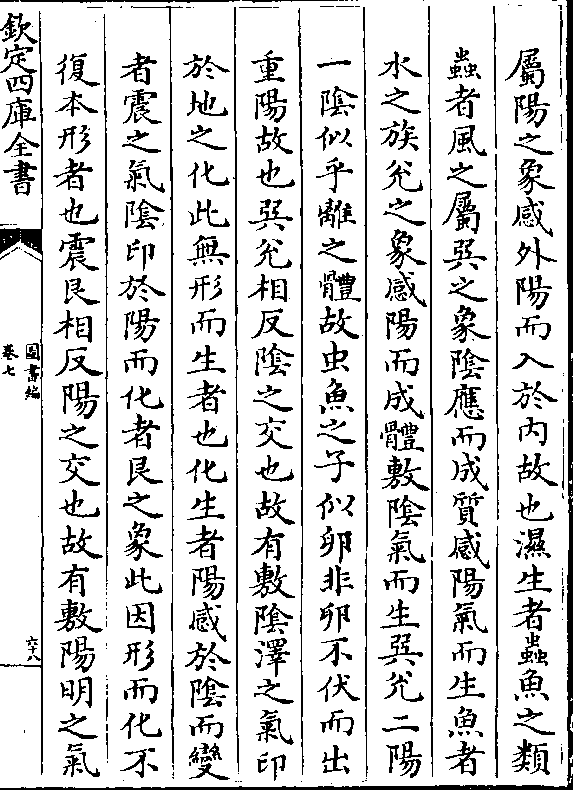 屬陽之象感外陽而入於内故也濕生者蟲魚之類
蟲者風之屬巽之象陰應而成質感陽氣而生魚者
水之族兊之象感陽而成體敷陰氣而生巽兊二陽
一陰似乎離之體故虫魚之子似卵非卵不伏而出
重陽故也巽兊相反陰之交也故有敷陰澤之氣印
於地之化此無形而生者也化生者陽感於陰而變
者震之氣陰印於陽而化者艮之象此因形而化不
復本形者也震艮相反陽之交也故有敷陽明之氣
欽定四庫全書
圖書編
卷七
六十八